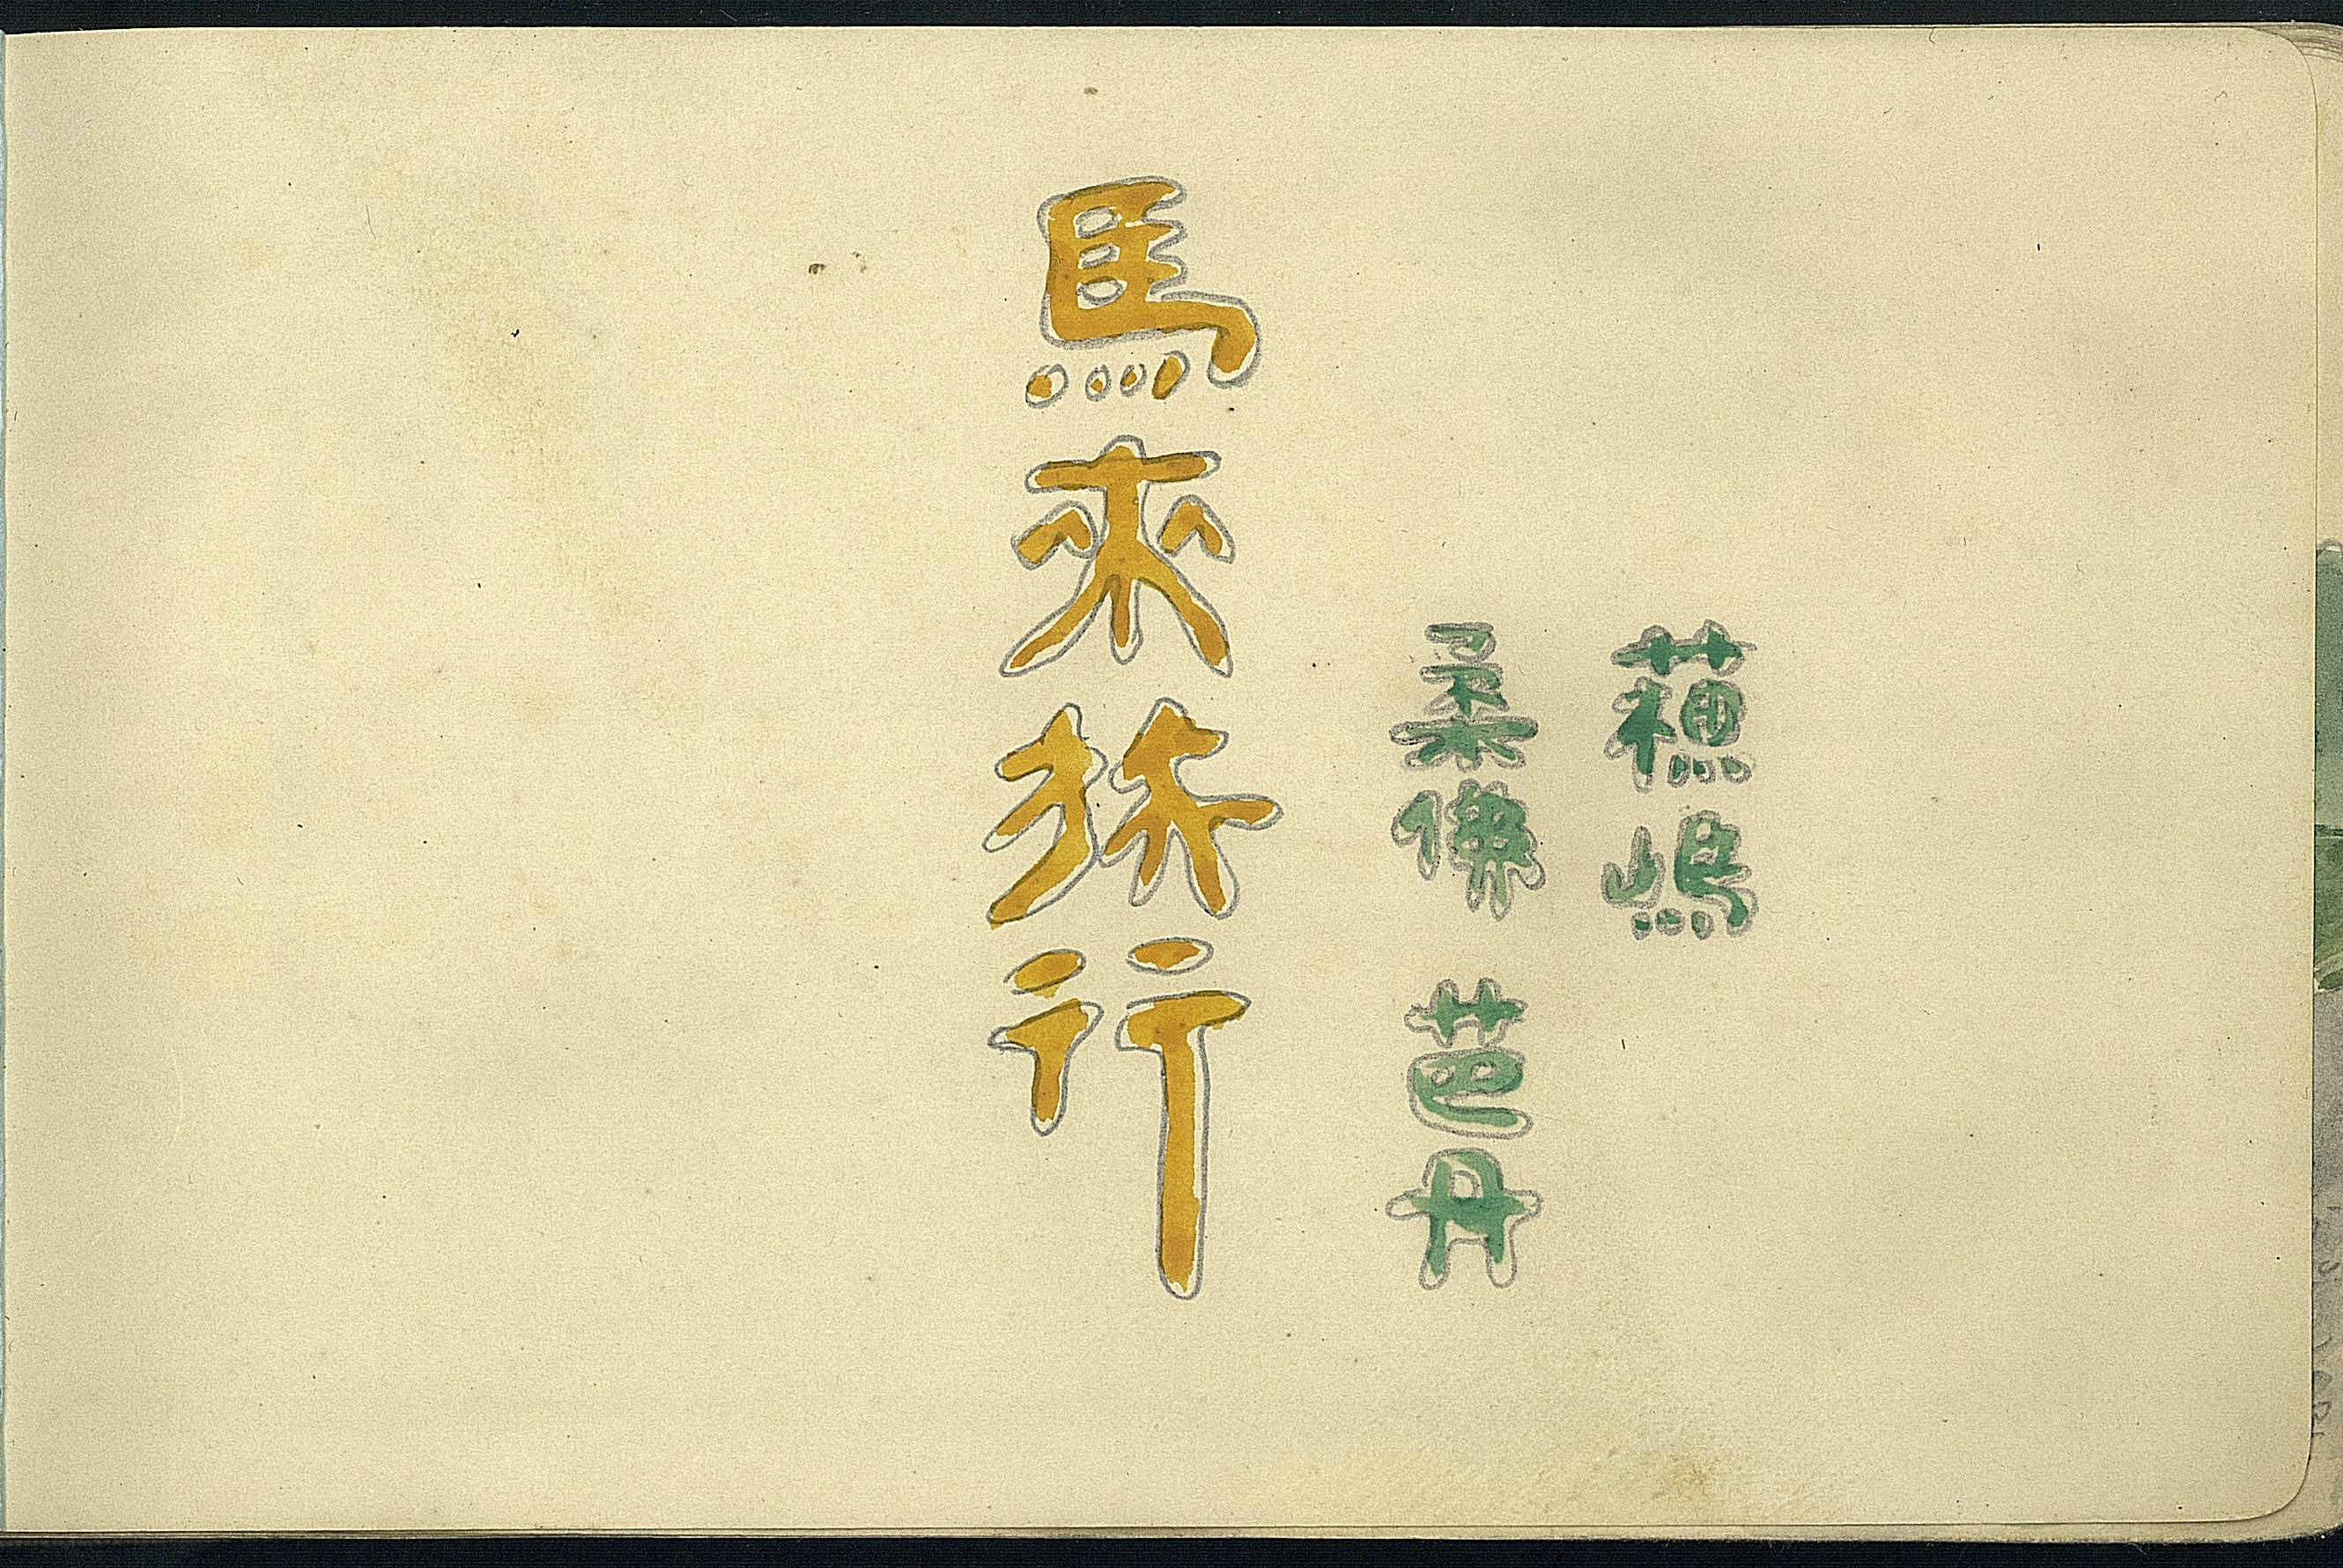 蘓嶋
柔佛 芭丹
馬來旅行